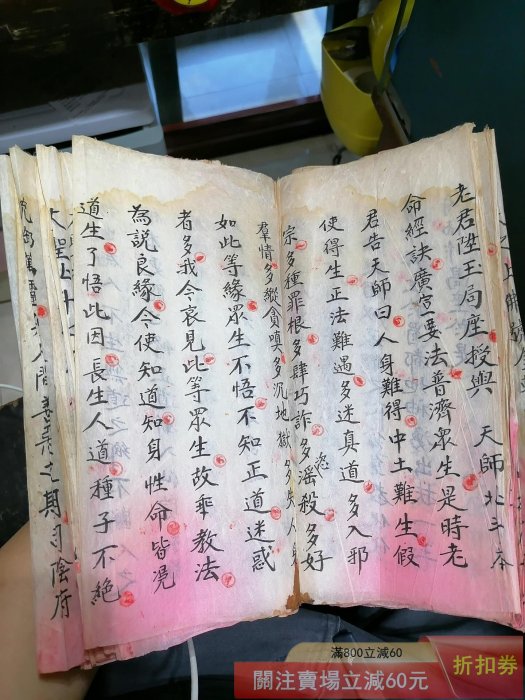 老君陞玉局座授與 天師北斗本
命經訣廣宣要法普濟眾生是時老
君告天師曰人身難得中土難生假
使得生正法難遇多迷真道多入邪
宗多種罪根多肆巧詐多淫殺多好
羣情多縱貪嗔多沉地獄多失人身
如此等緣眾生不悟不知正道迷惑
者多我今哀見此等眾生故垂教法
為說良緣令使知道知身性命皆凴
道生了悟此因長生人道種子不絕
人間善惡之期司陰府
滿800立減60
關注賣場立減60元
折扣券